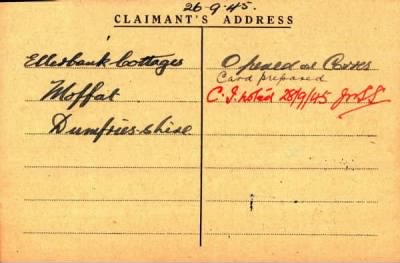 26-9-45.
CLAIMANT'S ADDRESS
Ellerbank Cottages
Moffat
Dumfries-shire
Opened at
Card prepared
C.I. noted 28/9/45